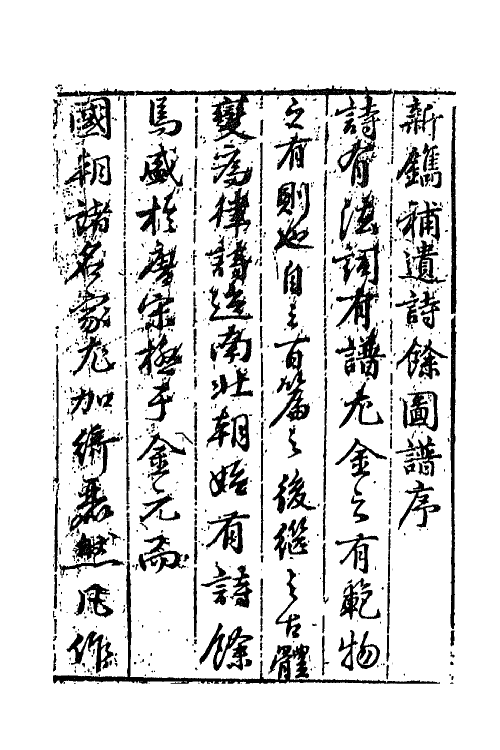 新鐫補遺詩餘圖譜序
詩有法詞有譜尤金之有範物
之有則也自三百篇之後繼之古體
變為律詩迨南北朝始有詩餘
焉盛於唐宋極乎金元而
國朝諸名家尤加然凡作